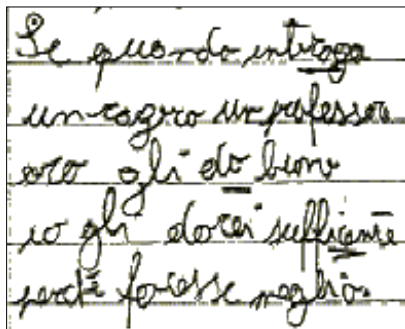 Se quando introga
un ragazo un professore
gli do
io gli darei sufficente
perchè facesse meglio.